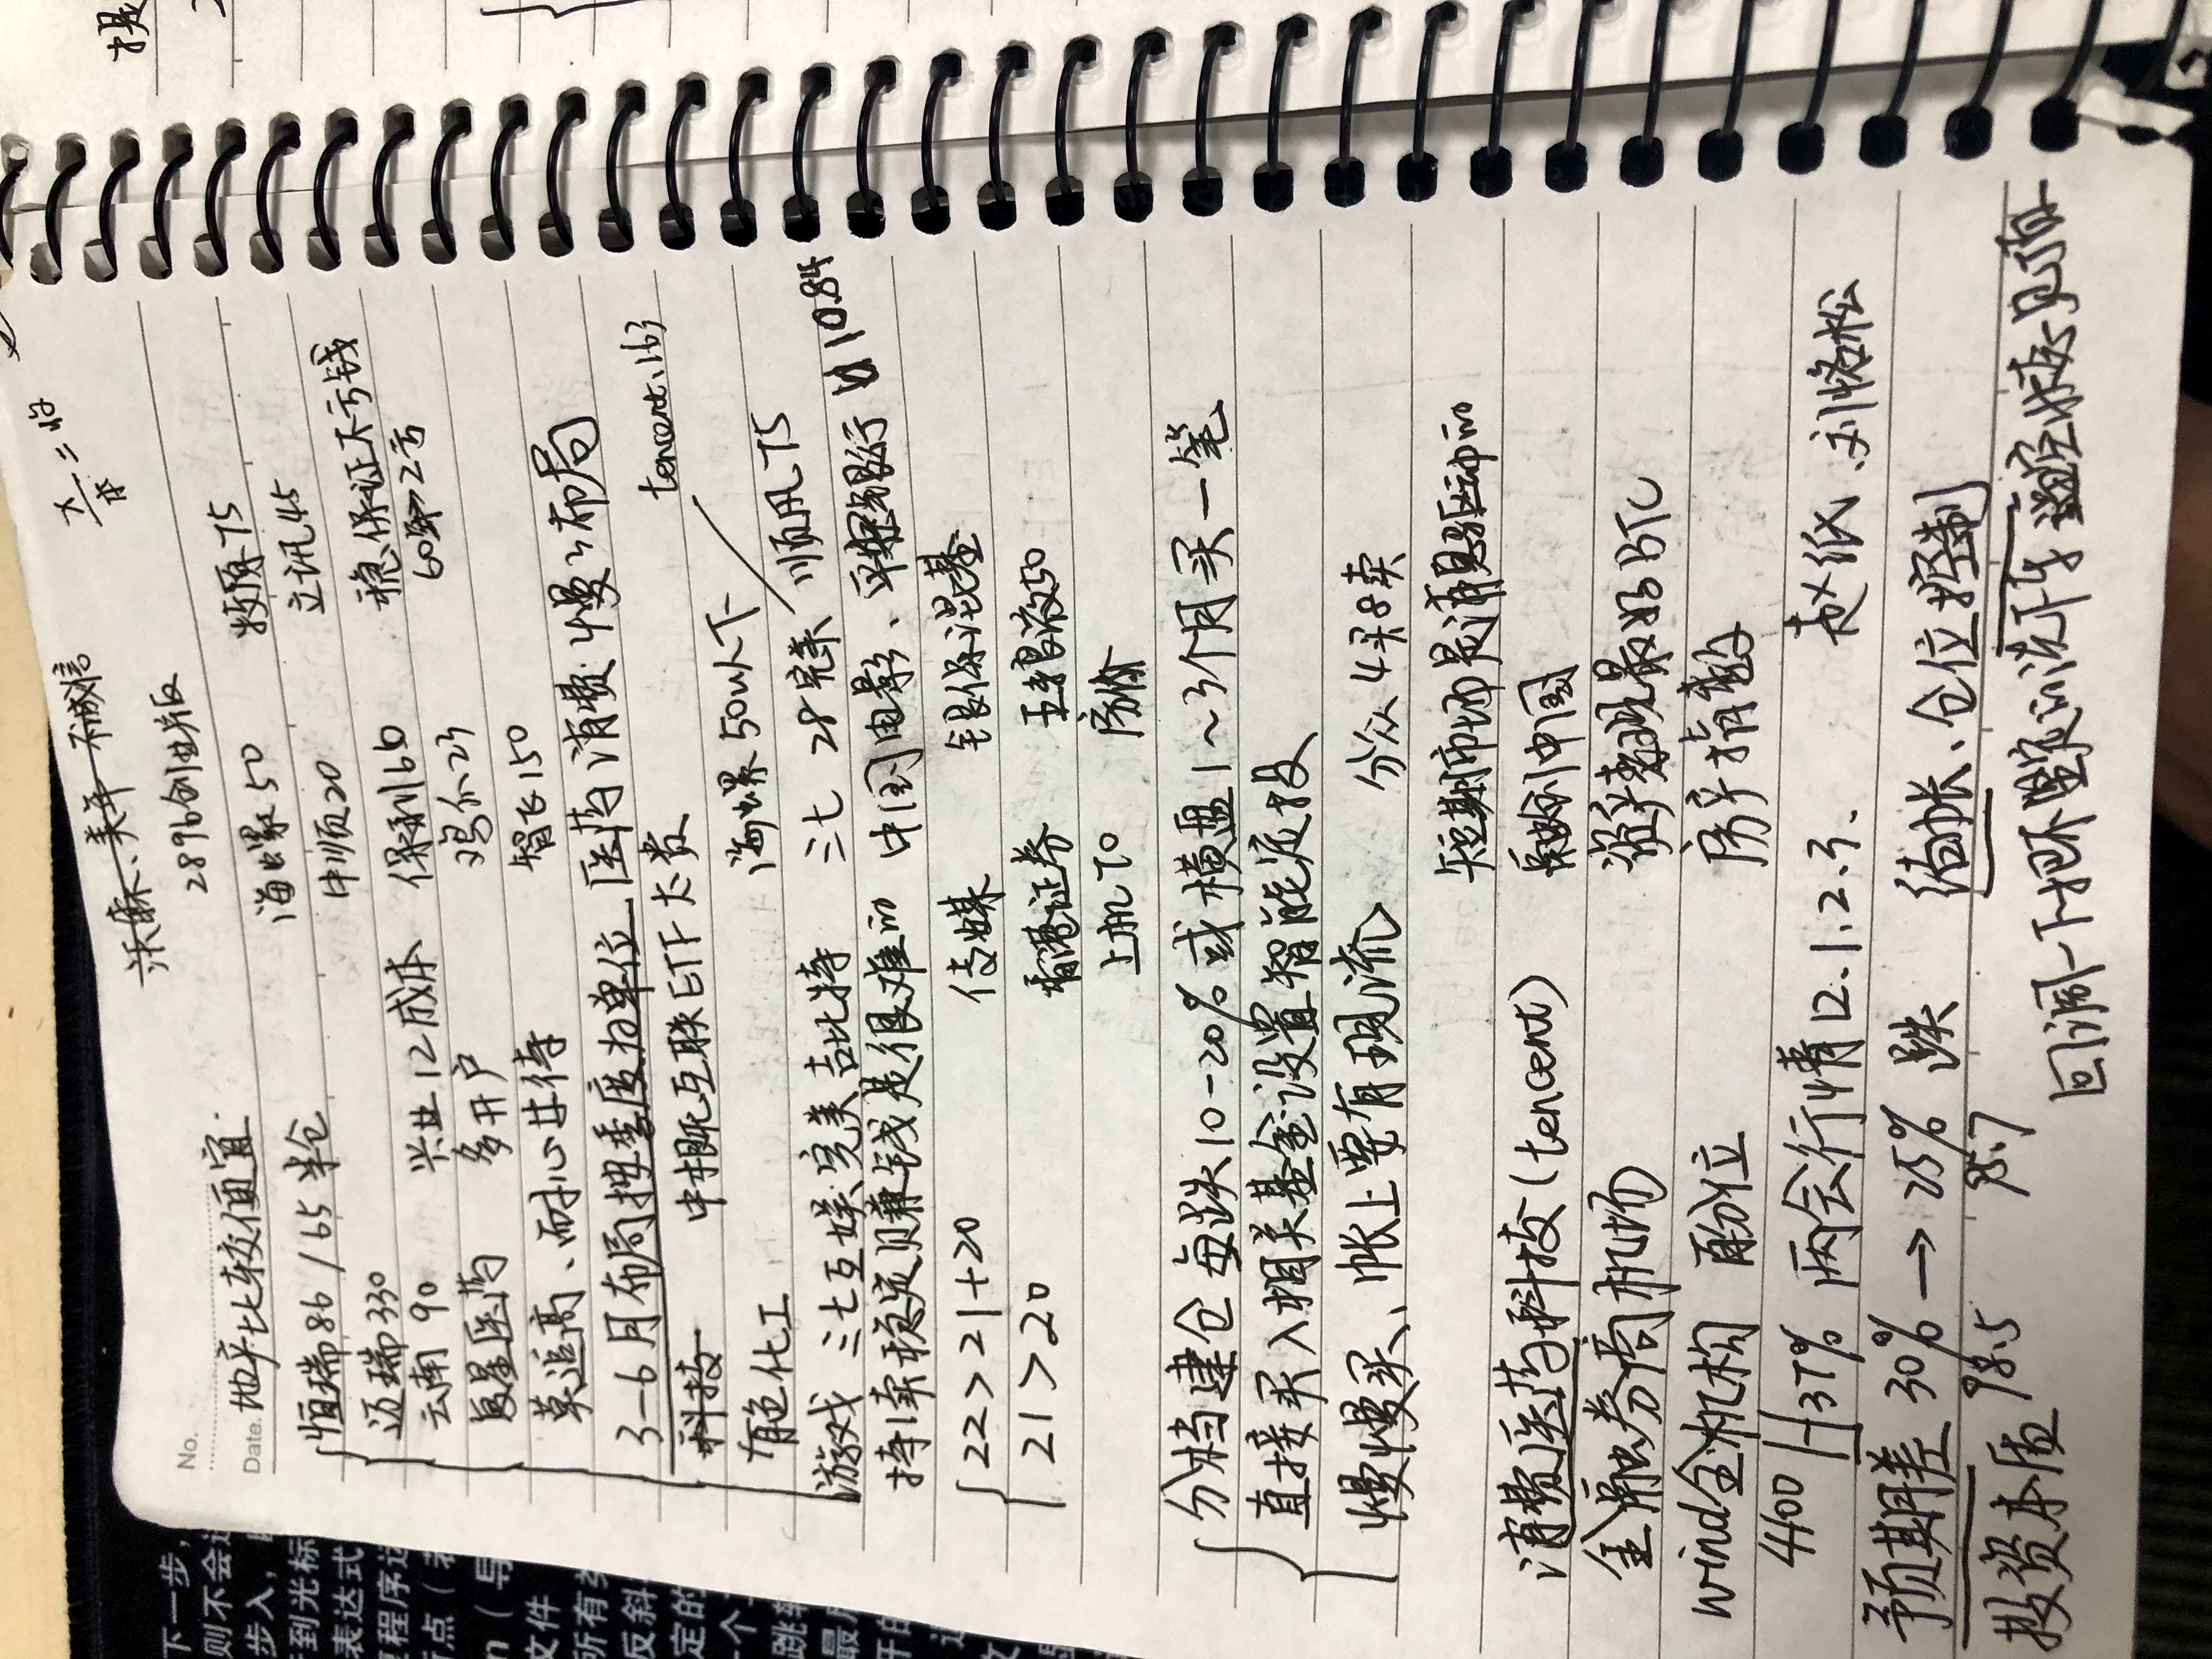 沃森、美年 不诚信
x/本=收
No.
2896创业版
Date. 地产比较便宜
海螺50 牧原75
恒瑞86/65 半仓
中顺20 立讯45
迈瑞330
稳,保证不亏钱
云南90 兴业12成本 保利160
60年>2亏
复星医药 多开户 鸡爪23
莫追高、耐心等待 智飞150
3-6月布局按季度为单位 医药 消费 慢慢布局
科技 中概互联ETF太贵 tencent、163
有色化工 海螺50以下
游戏 三七互娱 完美 吉比特 三七 28 完美 顺风75
持续稳定赚钱是很难的 中国电影、平安银行 10.84
22>21+20 传媒 银保混基
21>20 香港证券 五粮液50
上机70 房价
分档建仓 每跌10-20%或横盘1~3个月买一笔
直接买入相关基金设置智能定投
慢慢买、帐上要有现流 分众4买8卖
短期市场是消息驱动的
消费医药科技(tencent) 融创中国
金融券商机场 资产表现最好BTC
wind全机构 百分位 房产指数
4100 H37% 两会行情12、1、2、3、 赵纸、刘格松
预期差 30%→25% 跌 结帐、仓位控制
投资本质 98.5 95.7
回调一下把不坚定的洗下车 状态见顶